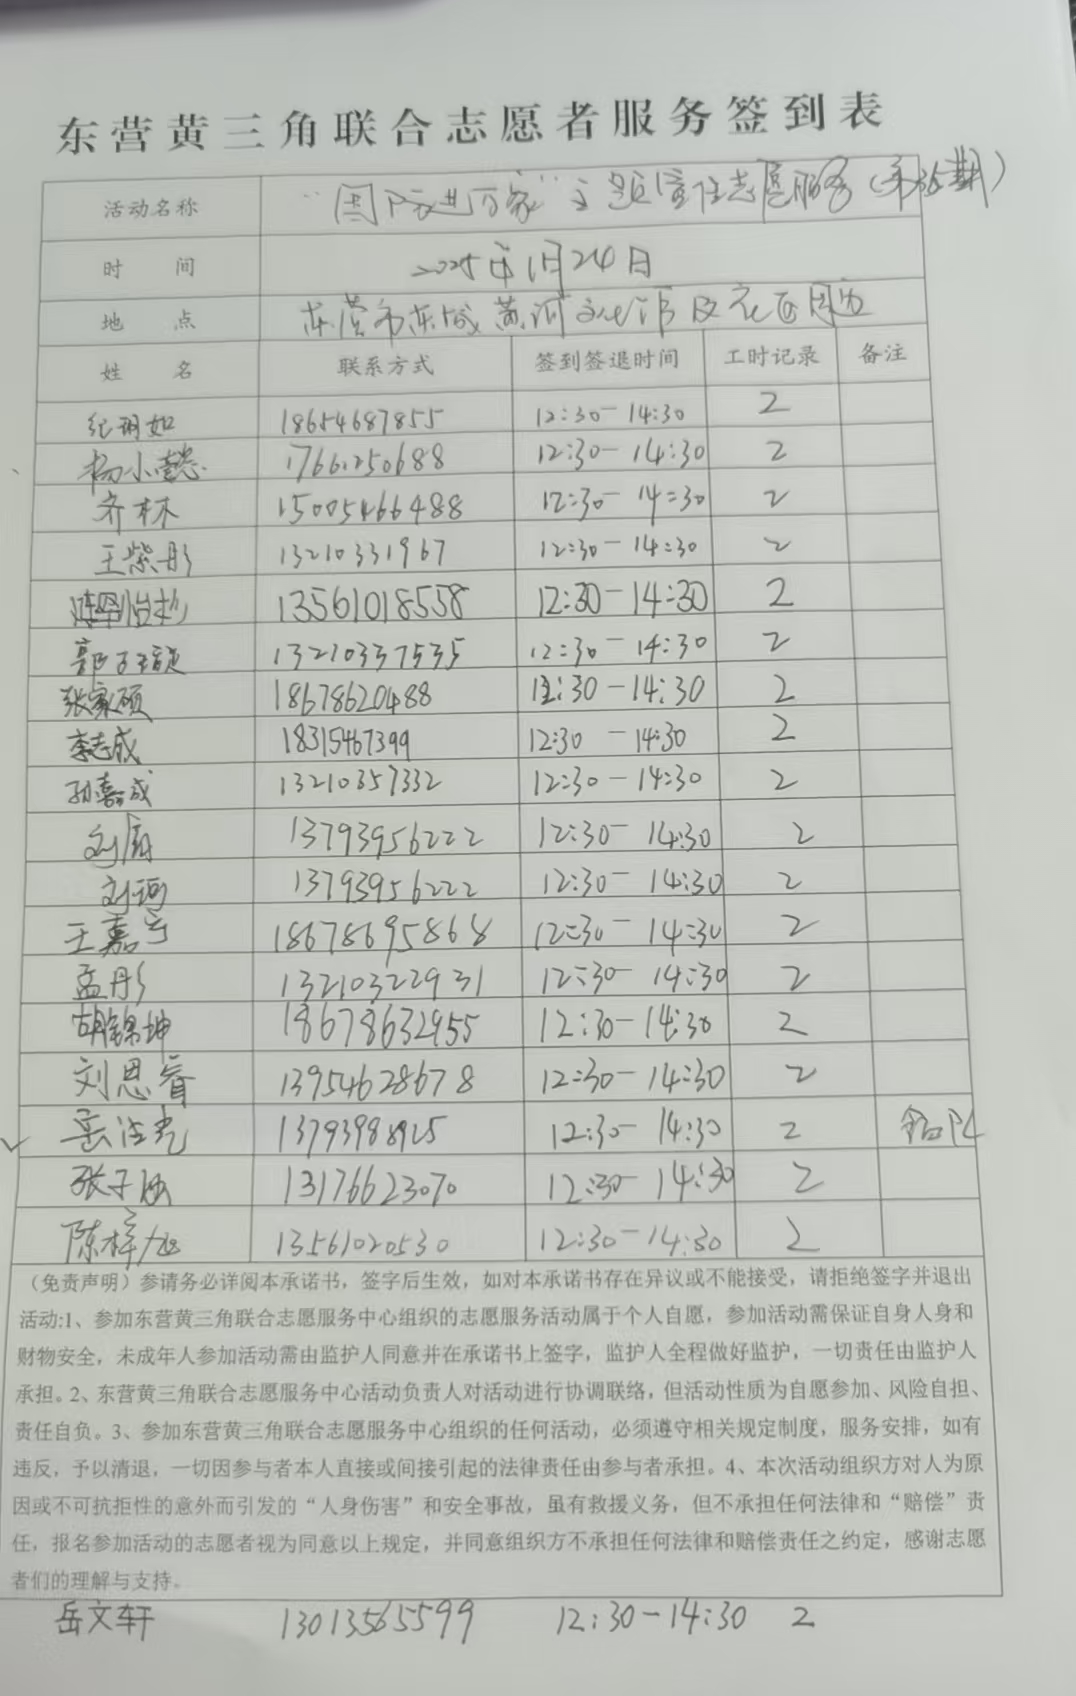 东营黄三角联合志愿者服务签到表
活动名称 “国防进万家”主题宣传志愿服务(第36期)
时 间 2025年1月24日
地 点 东营市东城黄河文化馆及花园周边
姓 名 联系方式 签到签退时间 工时记录 备注
纪玥如 18654687855 12:30-14:30 2
杨小懿 17661250688 12:30-14:30 2
齐林 15005466488 12:30-14:30 2
王紫彤 13210331967 12:30-14:30 2
13561018558 12:30-14:30 2
郭子颖 13210337535 12:30-14:30 2
张家硕 18678620488 12:30-14:30 2
李志成 18315467399 12:30-14:30 2
孙嘉成 13210357332 12:30-14:30 2
刘 13793956222 12:30-14:30 2
刘珂 13793956222 12:30-14:30 2
王嘉宁 18678695868 12:30-14:30 2
孟彤 13210322931 12:30-14:30 2
胡锦坤 18678632955 12:30-14:30 2
刘思睿 13954628678 12:30-14:30 2
岳洁光 13793988925 12:30-14:30 2
张子涵 13176623070 12:30-14:30 2
陈梓旭 13561020530 12:30-14:30 2
（免责声明）参请务必详阅本承诺书，签字后生效，如对本承诺书存在异议或不能接受，请拒绝签字并退出
活动:1、参加东营黄三角联合志愿服务中心组织的志愿服务活动属于个人自愿，参加活动需保证自身人身和
财物安全，未成年人参加活动需由监护人同意并在承诺书上签字，监护人全程做好监护，一切责任由监护人
承担。2、东营黄三角联合志愿服务中心活动负责人对活动进行协调联络，但活动性质为自愿参加、风险自担、
责任自负。3、参加东营黄三角联合志愿服务中心组织的任何活动，必须遵守相关规定制度，服务安排，如有
违反，予以清退，一切因参与者本人直接或间接引起的法律责任由参与者承担。4、本次活动组织方对人为原
因或不可抗拒性的意外而引发的“人身伤害”和安全事故，虽有救援义务，但不承担任何法律和“赔偿”责
任，报名参加活动的志愿者视为同意以上规定，并同意组织方不承担任何法律和赔偿责任之约定，感谢志愿
者们的理解与支持。
岳文轩 13013565599 12:30-14:30 2